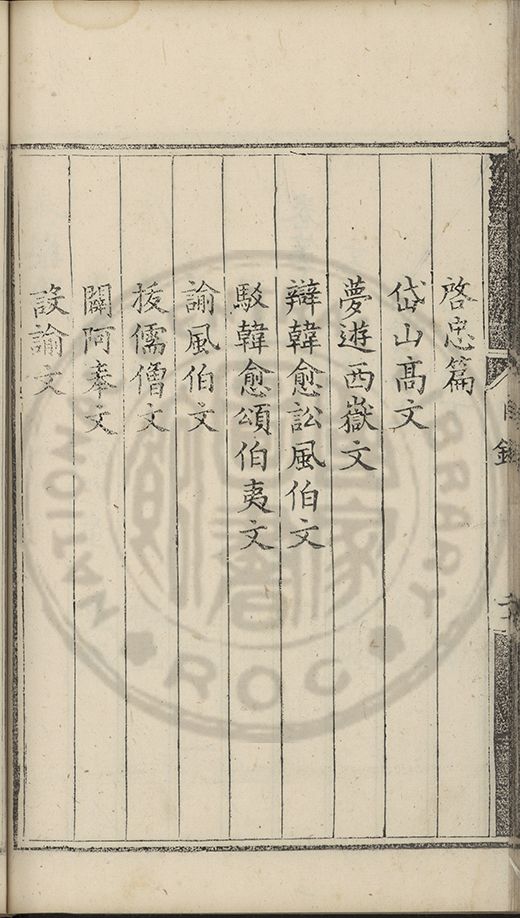 啓忠篇
岱山髙文
夢遊西嶽文
辯韓愈訟風伯文
駁韓愈頌伯夷文
諭風伯文
拔儒僧文
闢阿奉文
設諭文